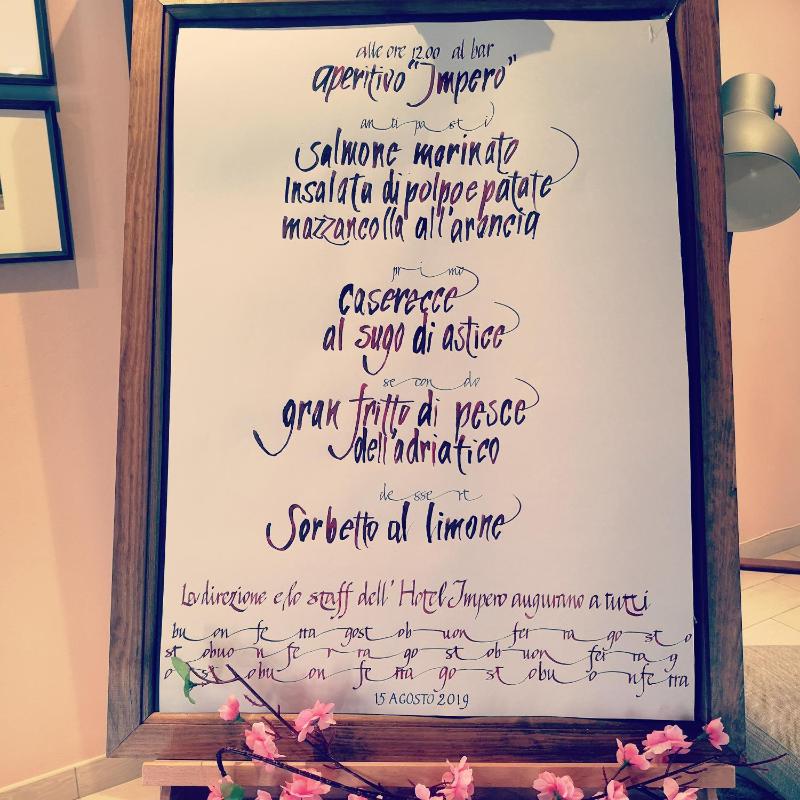 alle ore 12.00 al bar
aperitivo "Impero"
antipasti
salmone marinato
Insalata di polpo e patate
mazzancolla all'arancia
primo
caserecce
al sugo di astice
secondo
gran fritto di pesce
dell'adriatico
dessert
Sorbetto al limone
La direzione e lo staff dell'Hotel Impero augurano a tutti
buon ferragosto buon ferragosto
st obuon ferragosto buon ferrag
ost obuon ferragosto buonferra
15 AGOSTO 2019